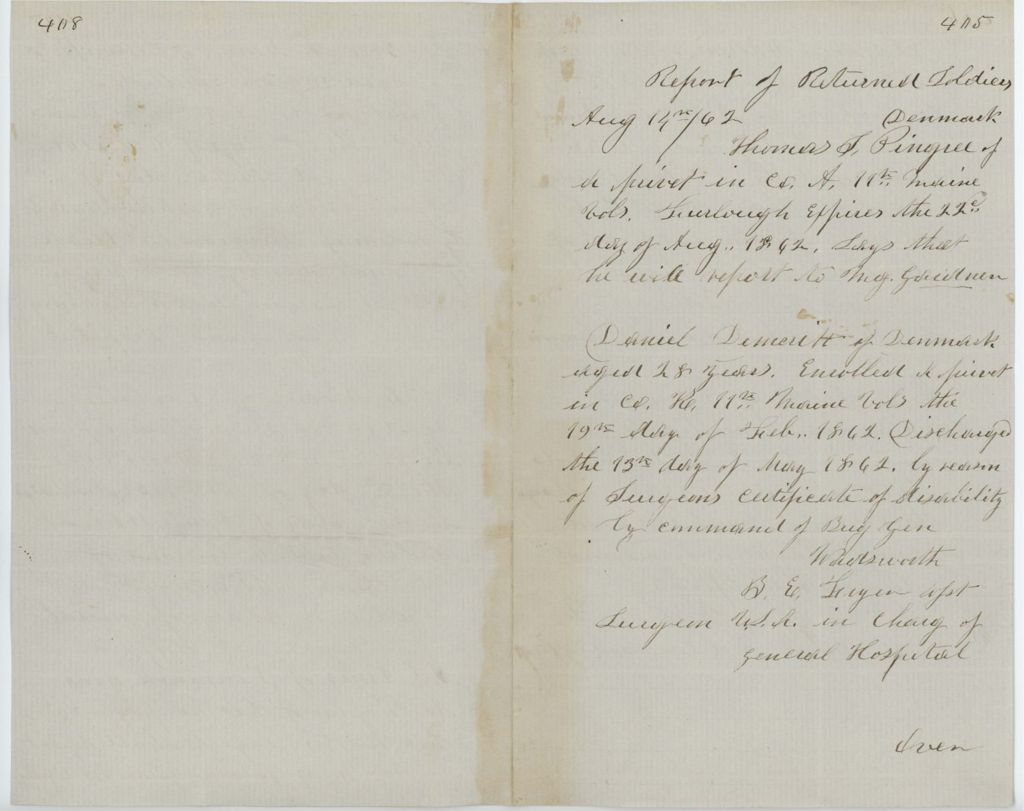 408
405
Report of Returned Soldiers
Aug 14th/62 Denmark
Thomas F. Pingree of
a privet in Co. A. 11th Maine
Vols. Furlough Expires the 22d
day of Aug. 1862. Says that
he will report to Mg. Gardner
Daniel Demeritt of Denmark
aged 28 years. Enrolled a privet
in Co. K, 11th Maine Vols the
19th day of Feb. 1862. Discharged
the 13th day of May 1862. by reason
of Surgeons certificate of disability
by command of Brig Gen
Wadsworth
B. E. asst
Surgeon U.S.A. in Charg of
general Hospital
over